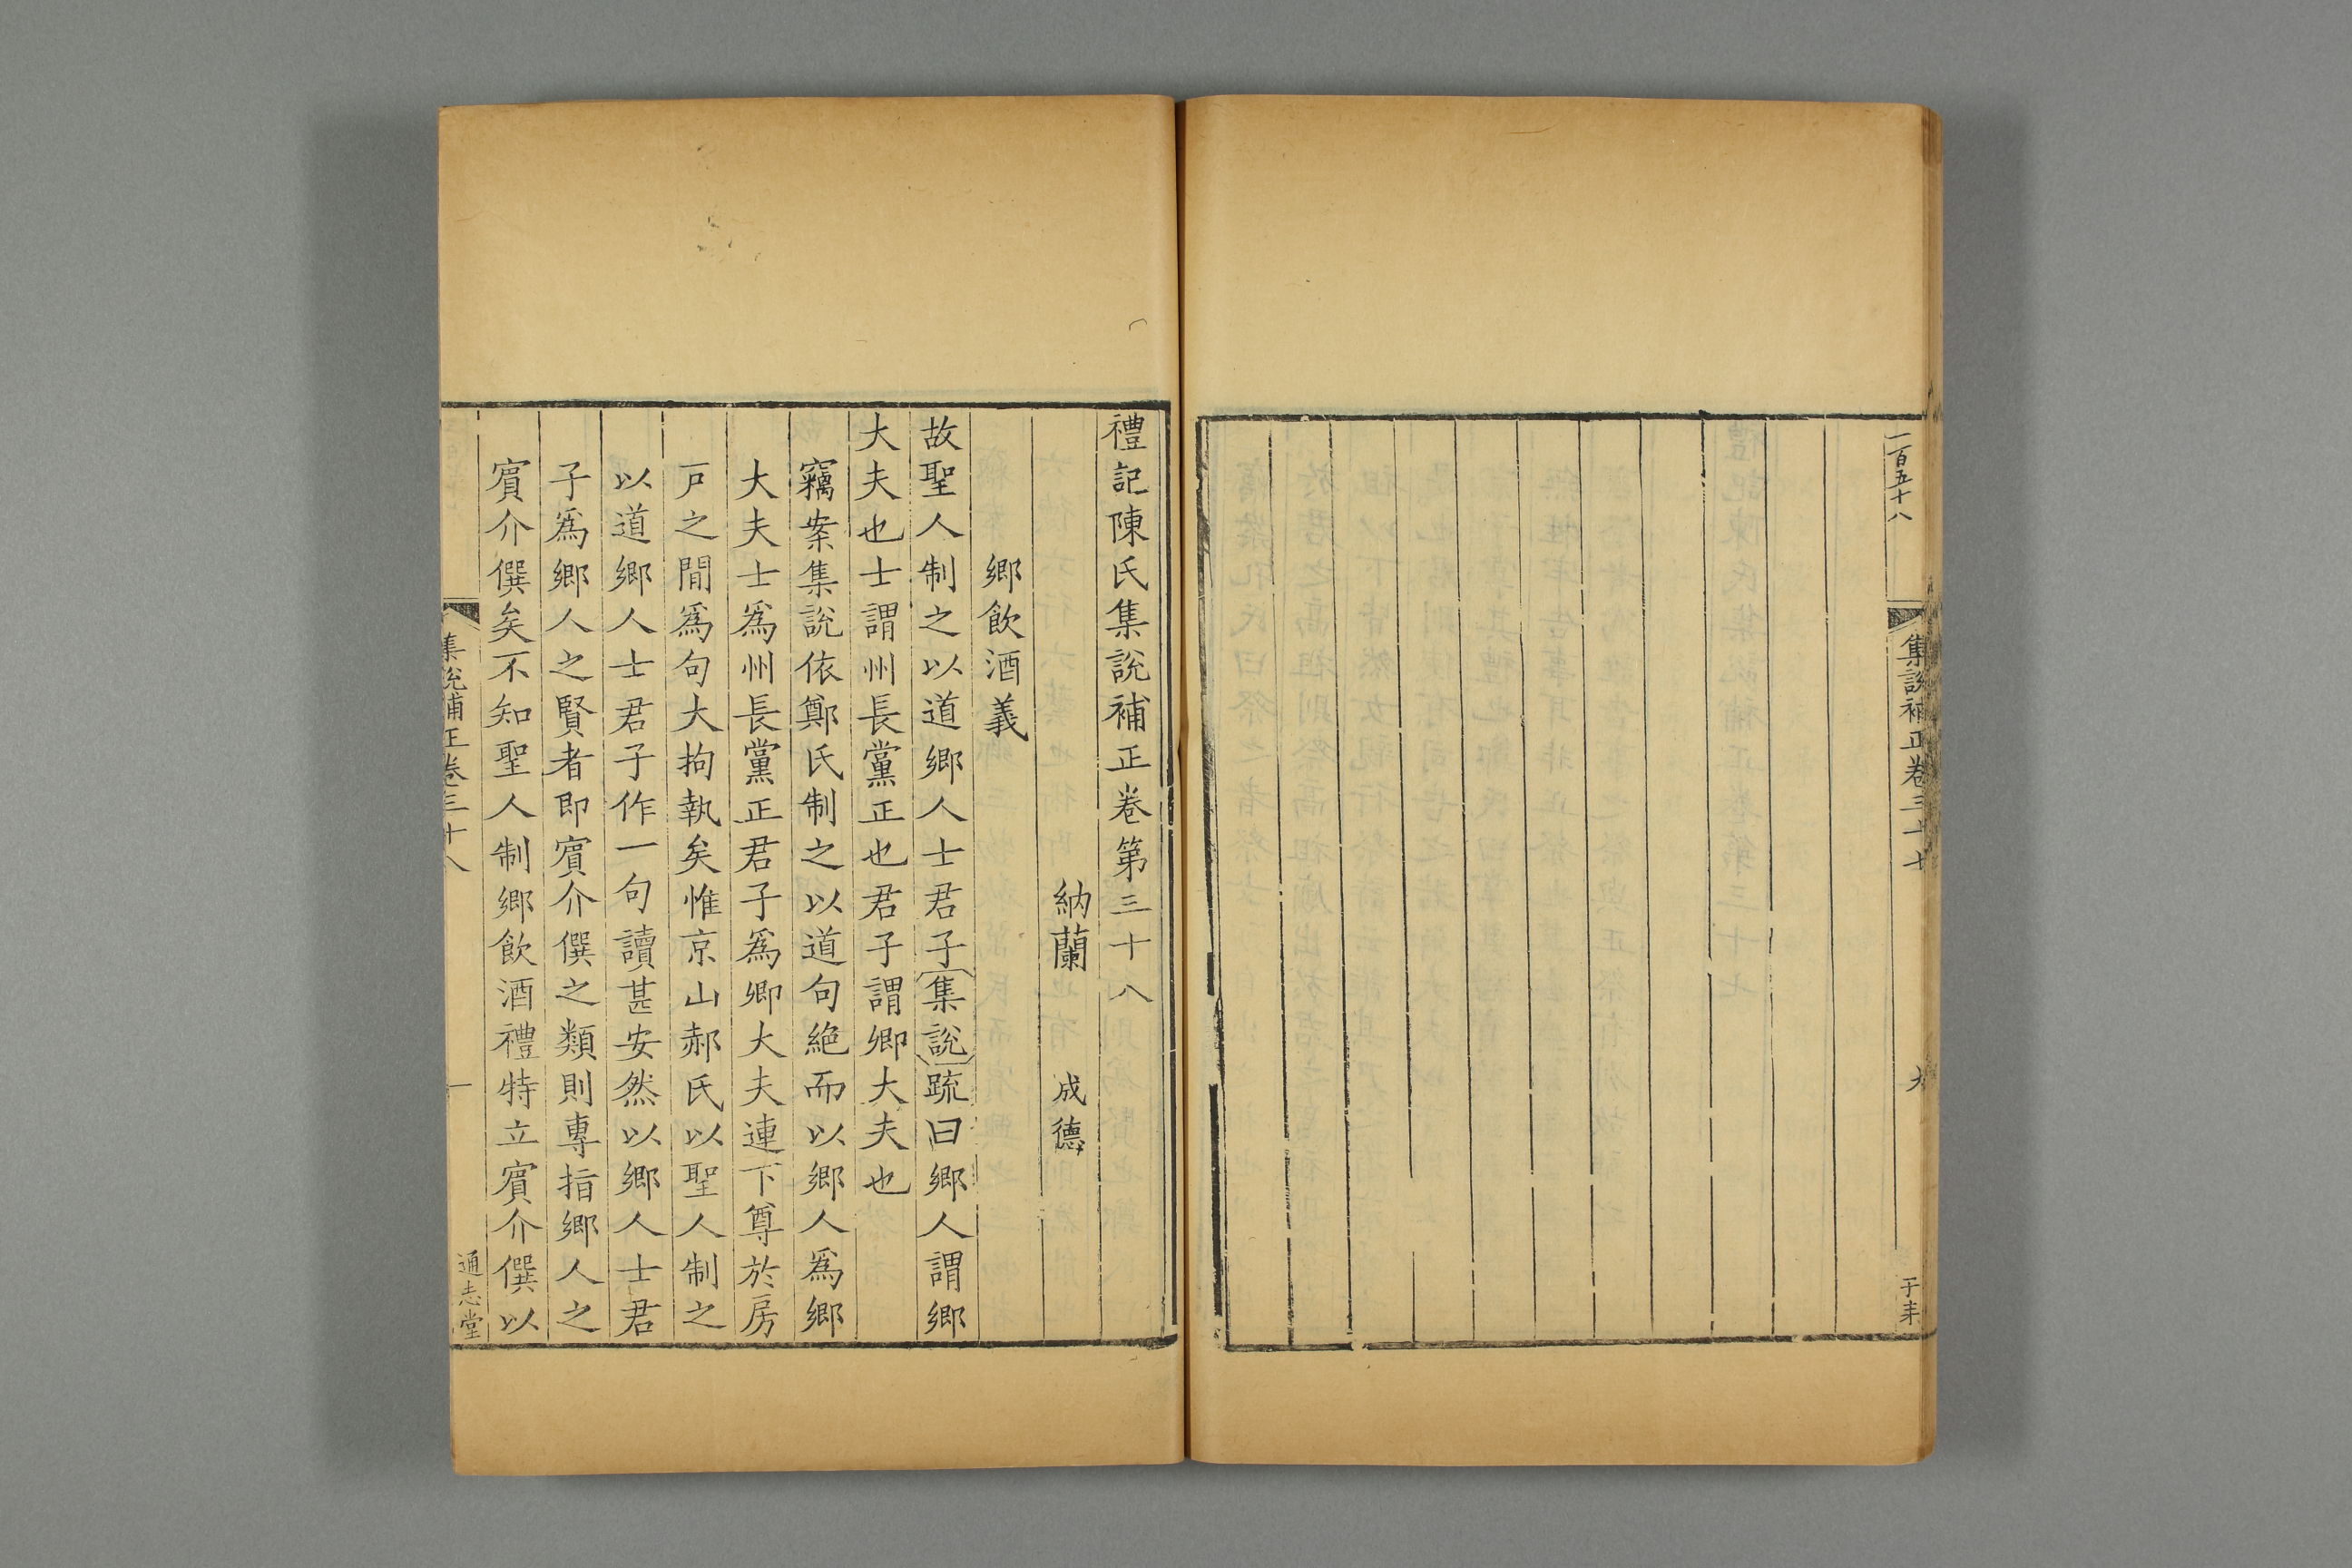 一百五十八
集說補正卷三十七
九
禮記陳氏集說補正卷第三十八
納蘭 成德
鄉飲酒義
故聖人制之以道鄉人士君子集說疏曰鄉人謂鄉
大夫也士謂州長黨正也君子謂卿大夫也
竊案集說依鄭氏制之以道句絶而以鄉人爲鄉
大夫士爲州長黨正君子爲卿大夫連下尊於房
戸之間爲句大拘執矣惟京山郝氏以聖人制之
以道鄉人士君子作一句讀甚安然以鄉人士君
子爲鄉人之賢者即賔介僎之類則專指鄉人之
賔介僎矣不知聖人制鄉飲酒禮特立賔介僎以
集說補正卷三十八
一
通志堂